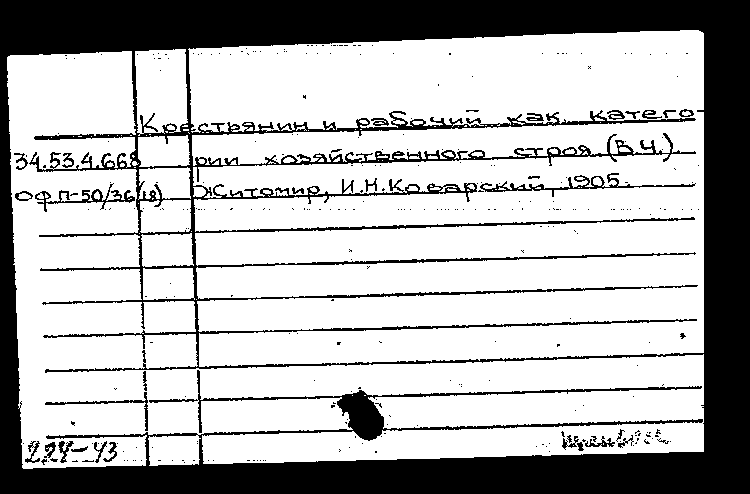 Крестьянин и рабочий как катего-
34.53.4.668 рии хозяйственного строя (В.Ч.).
ОФ П-50/36(18) Житомир, И.Н.Коварский, 1905.
224-43